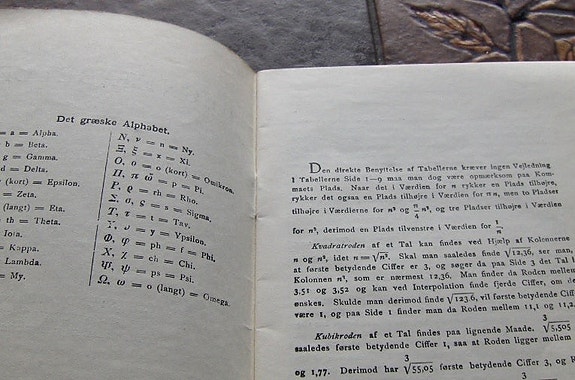 Det græske Alphabet.
= a = Alpha.
b = Beta.
g = Gamma.
d = Delta.
(kort) = Epsilon.
= Zeta.
(langt) = Eta.
= th = Theta.
= Jota.
= Kappa.
= Lambda.
= My.
N, ν = n = Ny.
Ξ, ξ = x = Xi.
O, o = o (kort) = Omikron.
Π, π ϖ = p = Pi.
P, ρ = rh = Rho.
Σ, σ, ς = s = Sigma.
T, τ = t = Tav.
= y = Ypsilon.
Φ, φ = ph = f = Phi.
X, χ = ch = Chi.
= ps = Psi.
Ω, ω = o (langt) = Omega.
Den direkte Benyttelse af Tabellerne kræver ingen Vejledning
I Tabellerne Side 1—9 maa man dog være opmærksom paa Kom-
maets Plads. Naar det i Værdien for n rykker en Plads tilhøjre,
rykker det ogsaa en Plads tilhøjre i Værdien for πn, men to Pladser
tilhøjre i Værdierne for n² og π/4 n², og tre Pladser tilhøjre i Værdien
for n³, derimod en Plads tilvenstre i Værdien for 1/n.
Kvadratroden af et Tal kan findes ved Hjælp af Kolonnerne
n og n², idet n = √n². Skal man saaledes finde √12,36, ser man,
at første betydende Ciffer er 3, og søger da paa Side 3 det Tal i
Kolonnen n², som er nærmest 12,36. Man finder da Roden mellem
3,51 og 3,52 og kan ved Interpolation finde fjerde Ciffer, om det
ønskes. Skulde man derimod finde √123,6, vil første betydende Ciffer
være 1, og paa Side 1 finder man da Roden mellem 11,1 og 11,2.
Kubikroden af et Tal findes paa lignende Maade. ∛5,505
saaledes første betydende Ciffer 1, saa at Roden ligger mellem
og 1,77. Derimod har ∛55,05 første betydende Ciffer 3, og